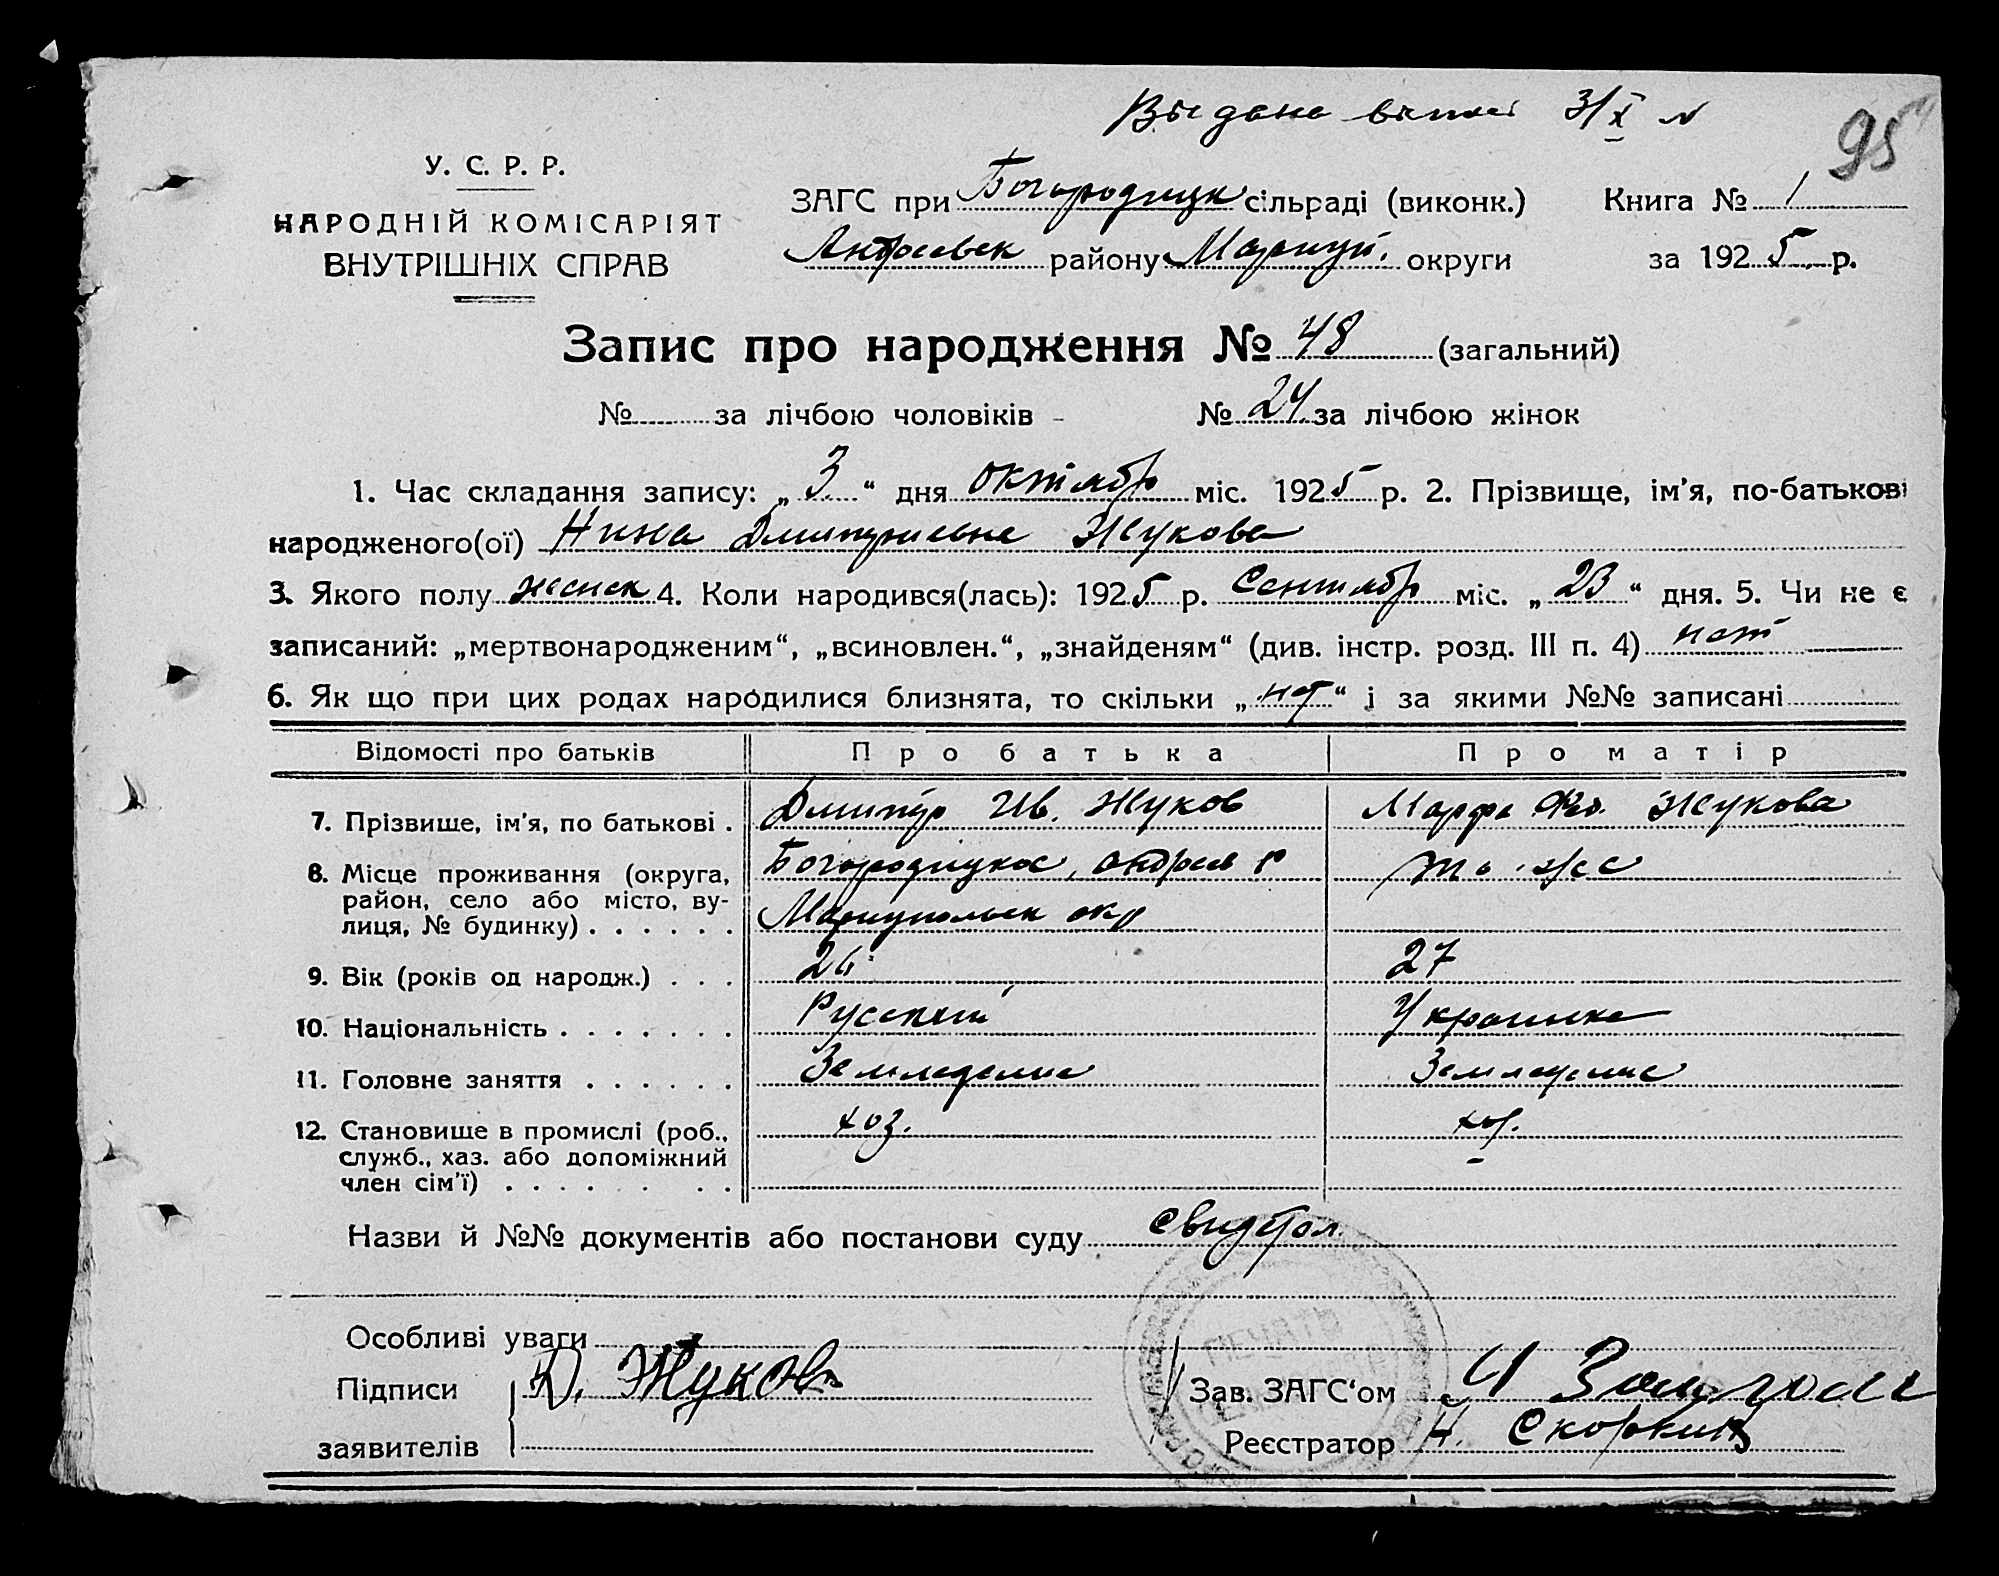 Выдана выпись 3/X
95
У. С. Р. Р.
НАРОДНІЙ КОМІСАРІЯТ
ВНУТРІШНІХ СПРАВ
ЗАГС при Богородицк сільраді (виконк.) Книга № 1
Андреевск району Мариуп. округи за 1925 р.
Запис про народження № 48 (загальний)
№ за лічбою чоловіків - № 24 за лічбою жінок
1. Час складання запису: „3“ дня октябр міс. 1925 р. 2. Прізвище, ім'я, по-батькові
народженого(ої) Нина Дмитриевна Жукова
3. Якого полу женск 4. Коли народився(лась): 1925 р. Сентябр міс. „23“ дня. 5. Чи не є
записаний: „мертвонародженим“, „всиновлен.“, „знайденям“ (див. інстр. розд. III п. 4) нет
6. Як що при цих родах народилися близнята, то скільки „нет“ і за якими №№ записані
Відомості про батьків Про батька Про матір
7. Прізвище, ім'я, по батькові . Дмитр Ив. Жуков Марфа Фед. Жукова
8. Місце проживання (округа, Богородицкое, Андреев р то же
район, село або місто, ву-
лиця, № будинку) . . . . . . Мариупольск окр
9. Вік (років од народж.) . . . 26 27
10. Національність . . . . . . . Русский Украинка
11. Головне заняття . . . . . . Земледелие Земледелие
12. Становище в промислі (роб., хоз. хоз.
служб., хаз. або допоміжний
член сім'ї) . . . . . . . .
Назви й №№ документів або постанови суду свидетел.
Особливі уваги
Підписи Д. Жуков Зав. ЗАГС'ом
заявителів Реєстратор Н. Скоркин
ПЕЧАТЬ